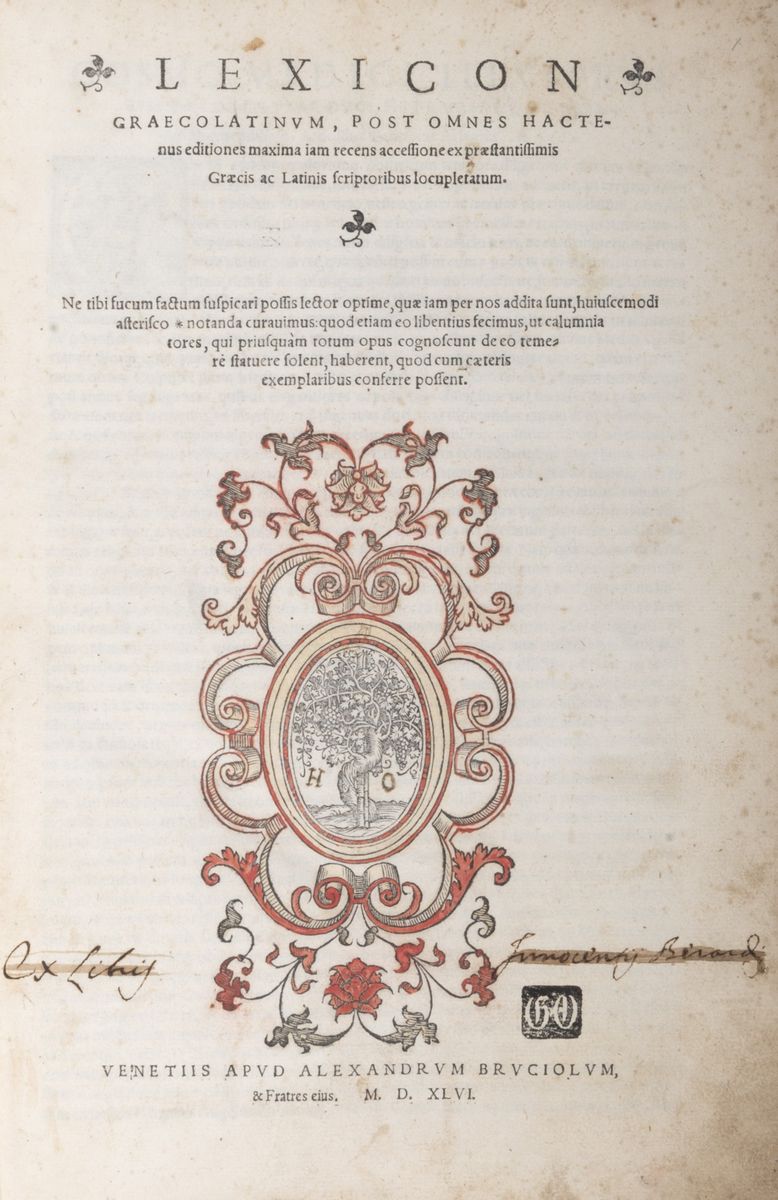 LEXICON
GRAECOLATINVM, POST OMNES HACTE-
nus editiones maxima iam recens accessione ex præstantissimis
Græcis ac Latinis scriptoribus locupletatum.
Ne tibi fucum factum suspicari possis lector optime, quæ iam per nos addita sunt, huiuscemodi
asterisco * notanda curauimus: quod etiam eo libentius fecimus, ut calumnia
tores, qui priusquàm totum opus cognoscunt de eo teme-
rè statuere solent, haberent, quod cum cæteris
exemplaribus conferre possent.
H O
Ex Libris Innocentij Berardi
VENETIIS APVD ALEXANDRVM BRVCIOLVM,
& Fratres eius. M. D. XLVI.